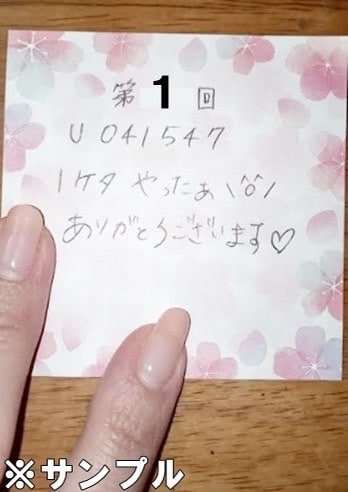 第1回
U041547
1ケタ やったぁ\(^o^)/
ありがとうございます♡
※サンプル